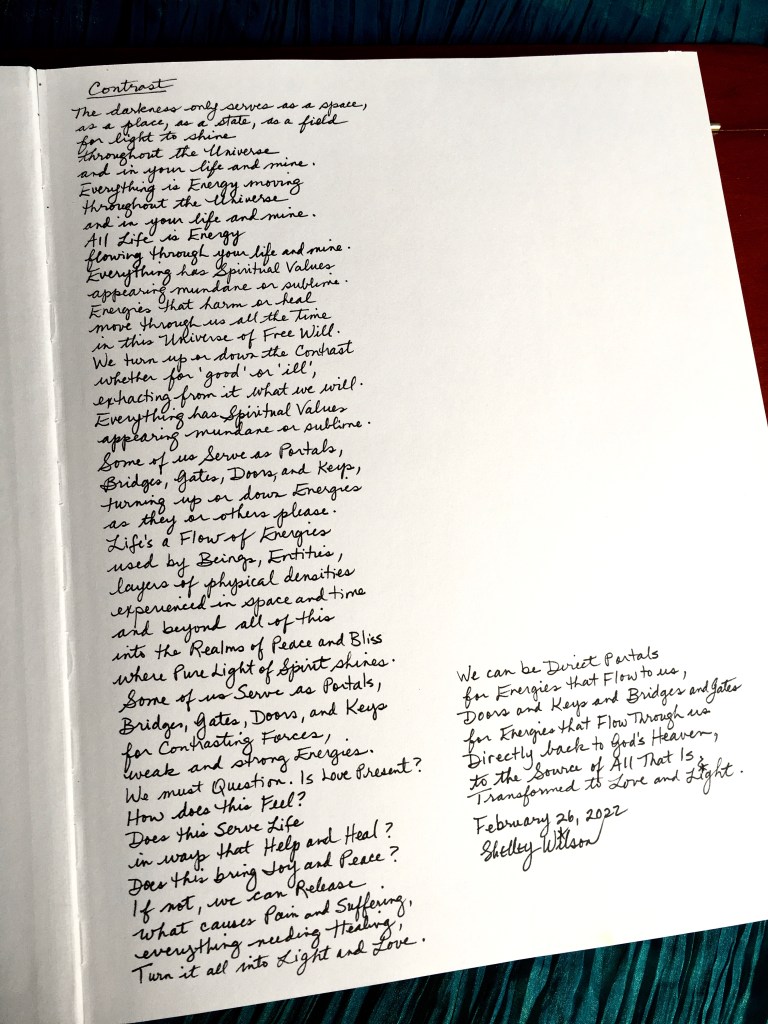 Contrast
The darkness only serves as a space,
as a place, as a state, as a field
for light to shine
throughout the Universe
and in your life and mine.
Everything is Energy moving
throughout the Universe
and in your life and mine.
All Life is Energy
flowing through your life and mine.
Everything has Spiritual Values
appearing mundane or sublime.
Energies that harm or heal
move through us all the time
in this Universe of Free Will.
We turn up or down the Contrast
whether for 'good' or 'ill',
extracting from it what we will.
Everything has Spiritual Values
appearing mundane or sublime.
Some of us Serve as Portals,
Bridges, Gates, Doors, and Keys,
turning up or down Energies
as they or others please.
Life's a Flow of Energies
used by Beings, Entities,
layers of physical densities
experienced in space and time
and beyond all of this
into the Realms of Peace and Bliss
where Pure Light of Spirit shines.
Some of us Serve as Portals,
Bridges, Gates, Doors, and Keys
for Contrasting Forces,
weak and strong Energies.
We must Question. Is Love Present?
How does this Feel?
Does this Serve Life
in ways that Help and Heal?
Does this bring Joy and Peace?
If not, we can Release
what causes Pain and Suffering,
everything needing Healing,
Turn it all into Light and Love.
We can be Direct Portals
for Energies that Flow to us,
Doors and Keys and Bridges and Gates
for Energies that Flow Through us
Directly back to God's Heaven,
to the Source of All That Is,
Transformed to Love and Light.
February 26, 2022
Shelley Wilson